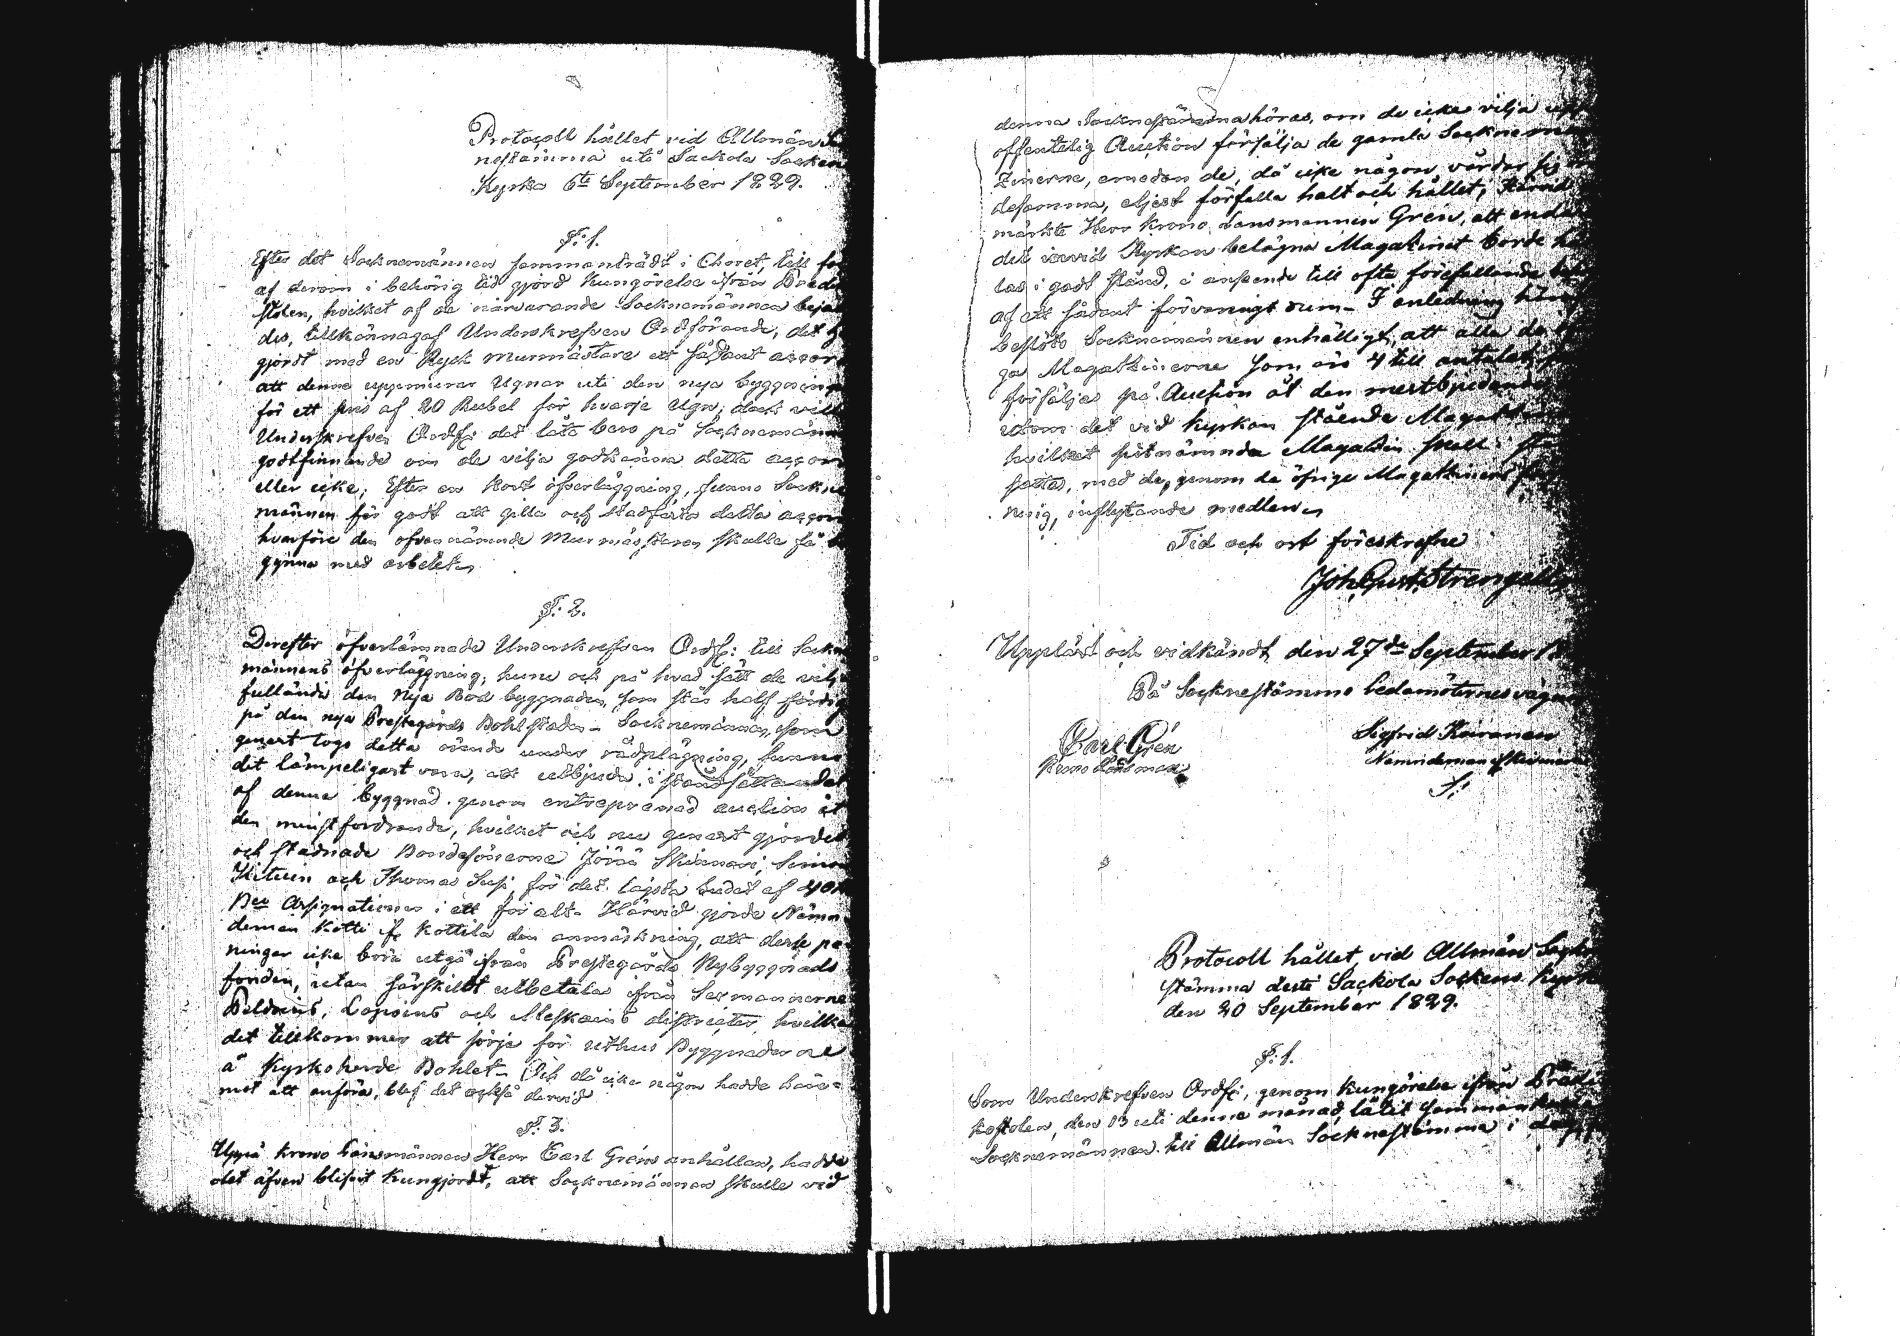 Protocoll hållet vid Allmän Soc
nestämma uti Sackola Socken
Kyrka 6te September 1829.
§. 1.
Efter det Socknemännen sammanträdt i Choret, till föl
af derom i behörig tid gjord Kungörelse ifrån Predik
stolen, hvilket af de närvarande Socknemännen beja
des, tillkännagaf Underskrefven Ordförande, det
gjordt med en Rysk Murmästare ett sådant accord
att denne uppmurar Ugnar uti den nya byggningen
för ett pris af 20 Rubel för hvarje Ugn; dock vill
Underskrefven Ordf: det låta bero på Socknemännens
godtfinnande om de vilja godkänna detta accord
eller icke; Efter en kort öfverläggning, funno Sockne
männen för godt att gilla och stadfästa detta accord
hvarföre den ofvannämnde Murmästaren skulle få be
gynna med arbetet.
§. 2.
Derefter öfverlämnade Underskrefven Ordf: till Sockne
männens öfverläggning, huru och på hvad sätt de vilja
fullända den Nya Bod byggnaden, som står half färdig
på den nya Prestegårds Bohlstaden. Socknemännen, som
genast togo detta ärende under rådplägning, funno
det lämpeligast vara, att utbjuda i ståndsättandet
af denna byggnad genom entreprenad auction åt
den minstfordrande, hvilket och nu genast gjordes
och stadnade Bondesönerne Jöran Skinnari, Simon
Hituin och Thomas Susi för det lägsta budet af 40
Bco Assignationer i ett för alt. Härvid gjorde Nämn
deman Kotti if. Kottila den anmärkning, att desse pe
ningar icke böra utgå ifrån Prestegårds Nybyggnads
fonden, utan särskildt utbetalas ifrån Sexmannerne
det tillkommer att sörja för uthus Byggnaderne
å Kyrkoherde Bohlet. Och då icke någon hadde häre-
mot att anföra, blef det också dervid
§. 3.
Uppå Krono Länsmannen Herr Carl Gréns anhållan, hadde
det äfven blifvit kungjordt, att Socknemännen skulle vid
denna Socknestämma höras, om de icke vilja
offentelig Auction försälja de gamla Socknema
zinerne, emedan de, då icke någon vårdar sig
desamma, eljest förfalla halt och hållet; Härvid
märkte Herr Krono Länsmannen Grén, att enda
det invid Kyrkan belägna Magazinet borde hål
las i godt stånd, i anseende till ofta förefallande behof
af ett sådant förvaringt rum. I anledning häraf
beslöto Socknemännen enhälligt, att alla de
ga Magatzinerne som äro 4 till antalet
försäljas på Auction åt den mestbjudande
utom det vid kyrkan stående Magatzinet
hvilket sistnämnda Magazin skall i
sättas, med de, genom de öfrige Magatzinens
ning, inflytande medlen.
Tid och ort föreskrefne
Joh. Gust. Strengell
Uppläst och vidkändt den 27de September 18
På Socknestämmo ledamöternes vägnar
Carl Grén
Krono Länsman
Sigfrid Kairanen
Nämndeman
Protocoll hållet vid Allmän Sockne
stämma uti Sackola Sockens Kyrka
den 20 September 1829.
§. 1.
Som Underskrefven Ordf:, genom Kungörelse ifrån Predi
kostolen, den 13 uti denna månad låtit sammankalla
Socknemännen till Allmän Socknestämma i dag